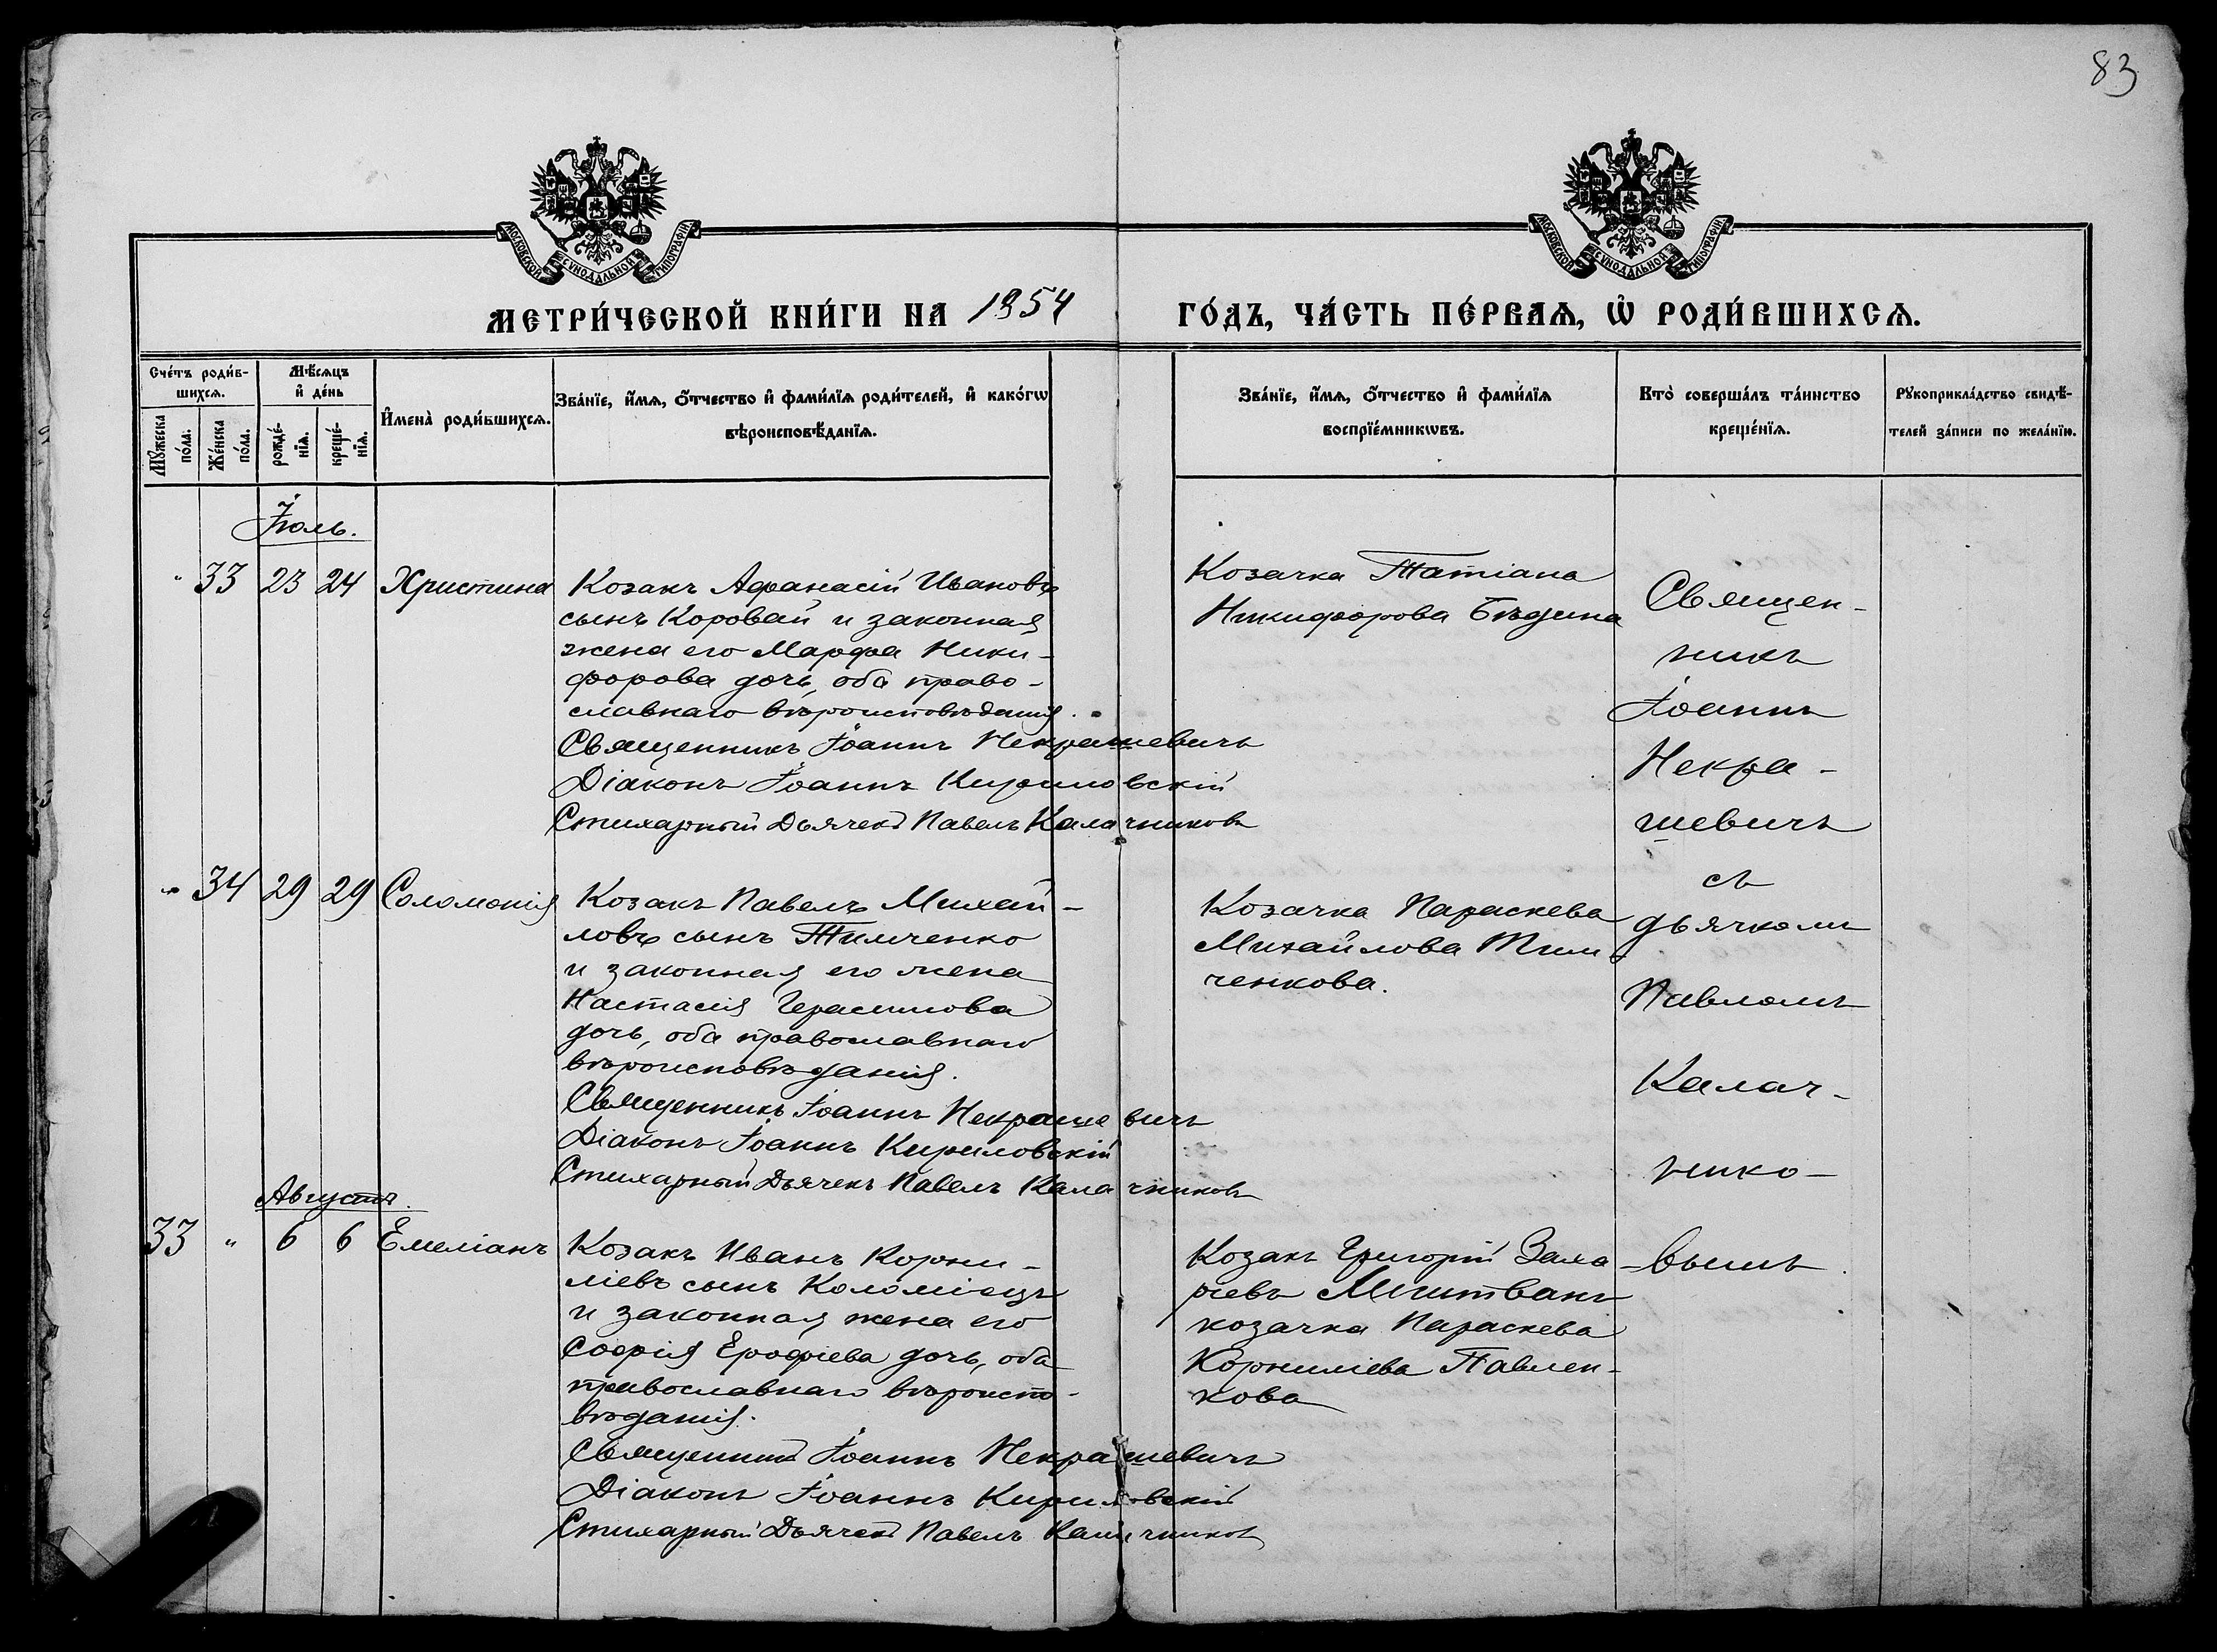 83
МОСКОВСКОЙ СѴНОДАЛЬНОЙ ТИПОГРАФІИ
МОСКОВСКОЙ СѴНОДАЛЬНОЙ ТИПОГРАФІИ
МЕТРИ́ЧЕСКОЙ КНИ́ГИ НА 1854 ГО́ДЪ, ЧА́СТЬ ПЕ́РВАѦ, Ѡ҆ РОДИ́ВШИХСѦ.
Сче́тъ роди́в-
шихсѧ.
Мѣ́сѧцъ
и҆ де́нь
Мꙋ́жеска
по́ла.
Же́нска
по́ла.
рожде́-
нїѧ.
креще́-
нїѧ.
И҆мена̀ роди́вшихсѧ.
Зва́нїе, и҆́мѧ, ѻ҆́тчество и҆ фами́лїѧ роди́телей, и҆ како́гѡ
вѣроисповѣ́данїѧ.
Зва́нїе, и҆́мѧ, ѻ҆́тчество и҆ фами́лїѧ
воспрїе́мникѡвъ.
Кто̀ соверша́лъ та́инство
креще́нїѧ.
Рꙋкоприкла́дство свидѣ́-
телей за́писи по жела́нїю.
Іюль.
" 33 23 24 Христина
Козакъ Афанасій Ивановъ
сынъ Коровай и законная
жена его Марфа Ники-
форова дочь, оба право-
славнаго вѣроисповѣданія.
Священникъ Іоаннъ Некрашевичъ
Діаконъ Іоаннъ Кириловскій
Стихарный Дьячекъ Павелъ Калачниковъ
Козачка Татіана
Никифорова Бѣдина
" 34 29 29 Соломонія
Козакъ Павелъ Михай-
ловъ сынъ Тимченко
и законная его жена
Настасія Герасимова
дочь, оба православнаго
вѣроисповѣданія.
Священникъ Іоаннъ Некрашевичъ
Діаконъ Іоаннъ Кириловскій
Стихарный Дьячекъ Павелъ Калачниковъ
Козачка Параскева
Михайлова Тим
ченкова.
Августъ.
33 " 6 6 Емеліанъ
Козакъ Иванъ Корни-
ліевъ сынъ Коломіецъ
и законная жена его
Софія Ерофіева дочь, оба
православнаго вѣроиспо-
вѣданія.
Священникъ Іоаннъ Некрашевичъ
Діаконъ Іоаннъ Кириловскій
Стихарный Дьячекъ Павелъ Калачниковъ
Козакъ Григорій Заха
ріевъ
козачка Параскева
Корниліева Павлен-
кова
Священ-
никъ
Іоаннъ
Некра-
шевичъ
съ
дьячкомъ
Павломъ
Калач-
нико-
-вымъ.